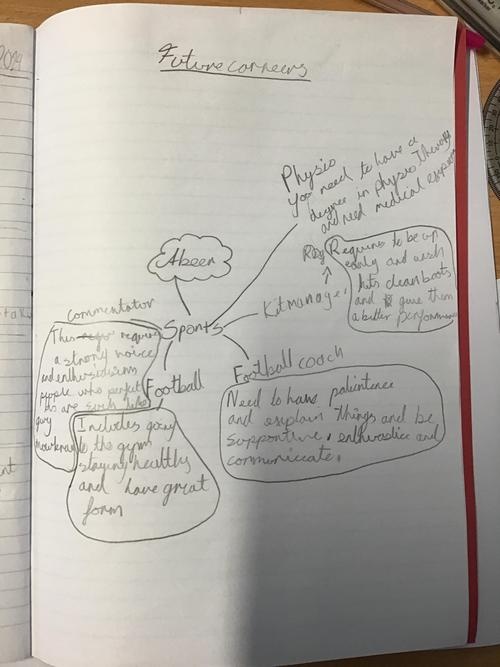 2024
Future carreers
Physio
you need to have a
degree in physio Therapy
and need medical
Abeer
Sports
Kitmanager
Requires to be up
early and wash
kits clean boots
and give them
a better performance
commentator
This requires
a strong voice
and enthusiasm
people who perfect
this are such like
gary
Football
Includes going
to the gym
staying healthy
and have great
form
Football coach
Need to have patientence
and explain things and be
supportive, enthuastice and
communiccate.